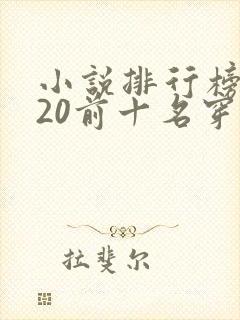 小説排行榜
20前十名穿
拉斐尔